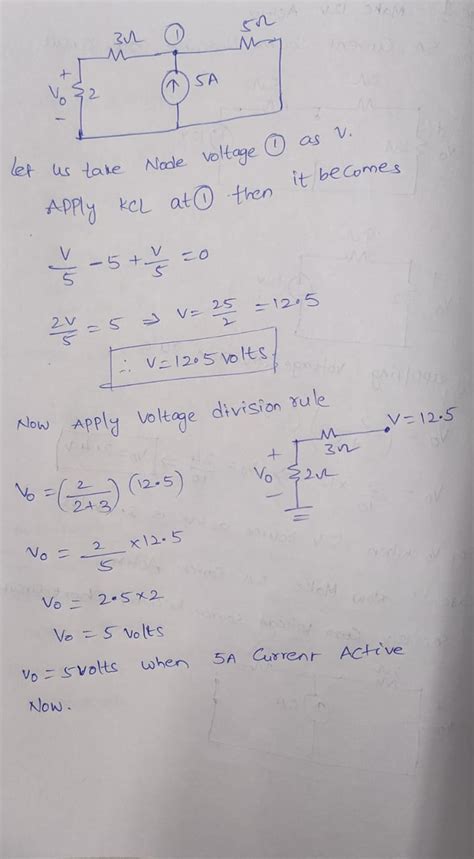 3Ω ① 5Ω
+
Vo 2 ↑ 5A
-
Let us take Node voltage ① as V.
Apply KCL at ① then it becomes
V/5 - 5 + V/5 = 0
2V/5 = 5 ⇒ V = 25/2 = 12.5
∴ V = 12.5 volts
Now Apply Voltage division rule
V = 12.5
3Ω
+
Vo 2Ω
-
Vo = (2/(2+3)) (12.5)
Vo = 2/5 × 12.5
Vo = 2.5 × 2
Vo = 5 volts
Vo = 5 volts when 5A Current Active
Now.